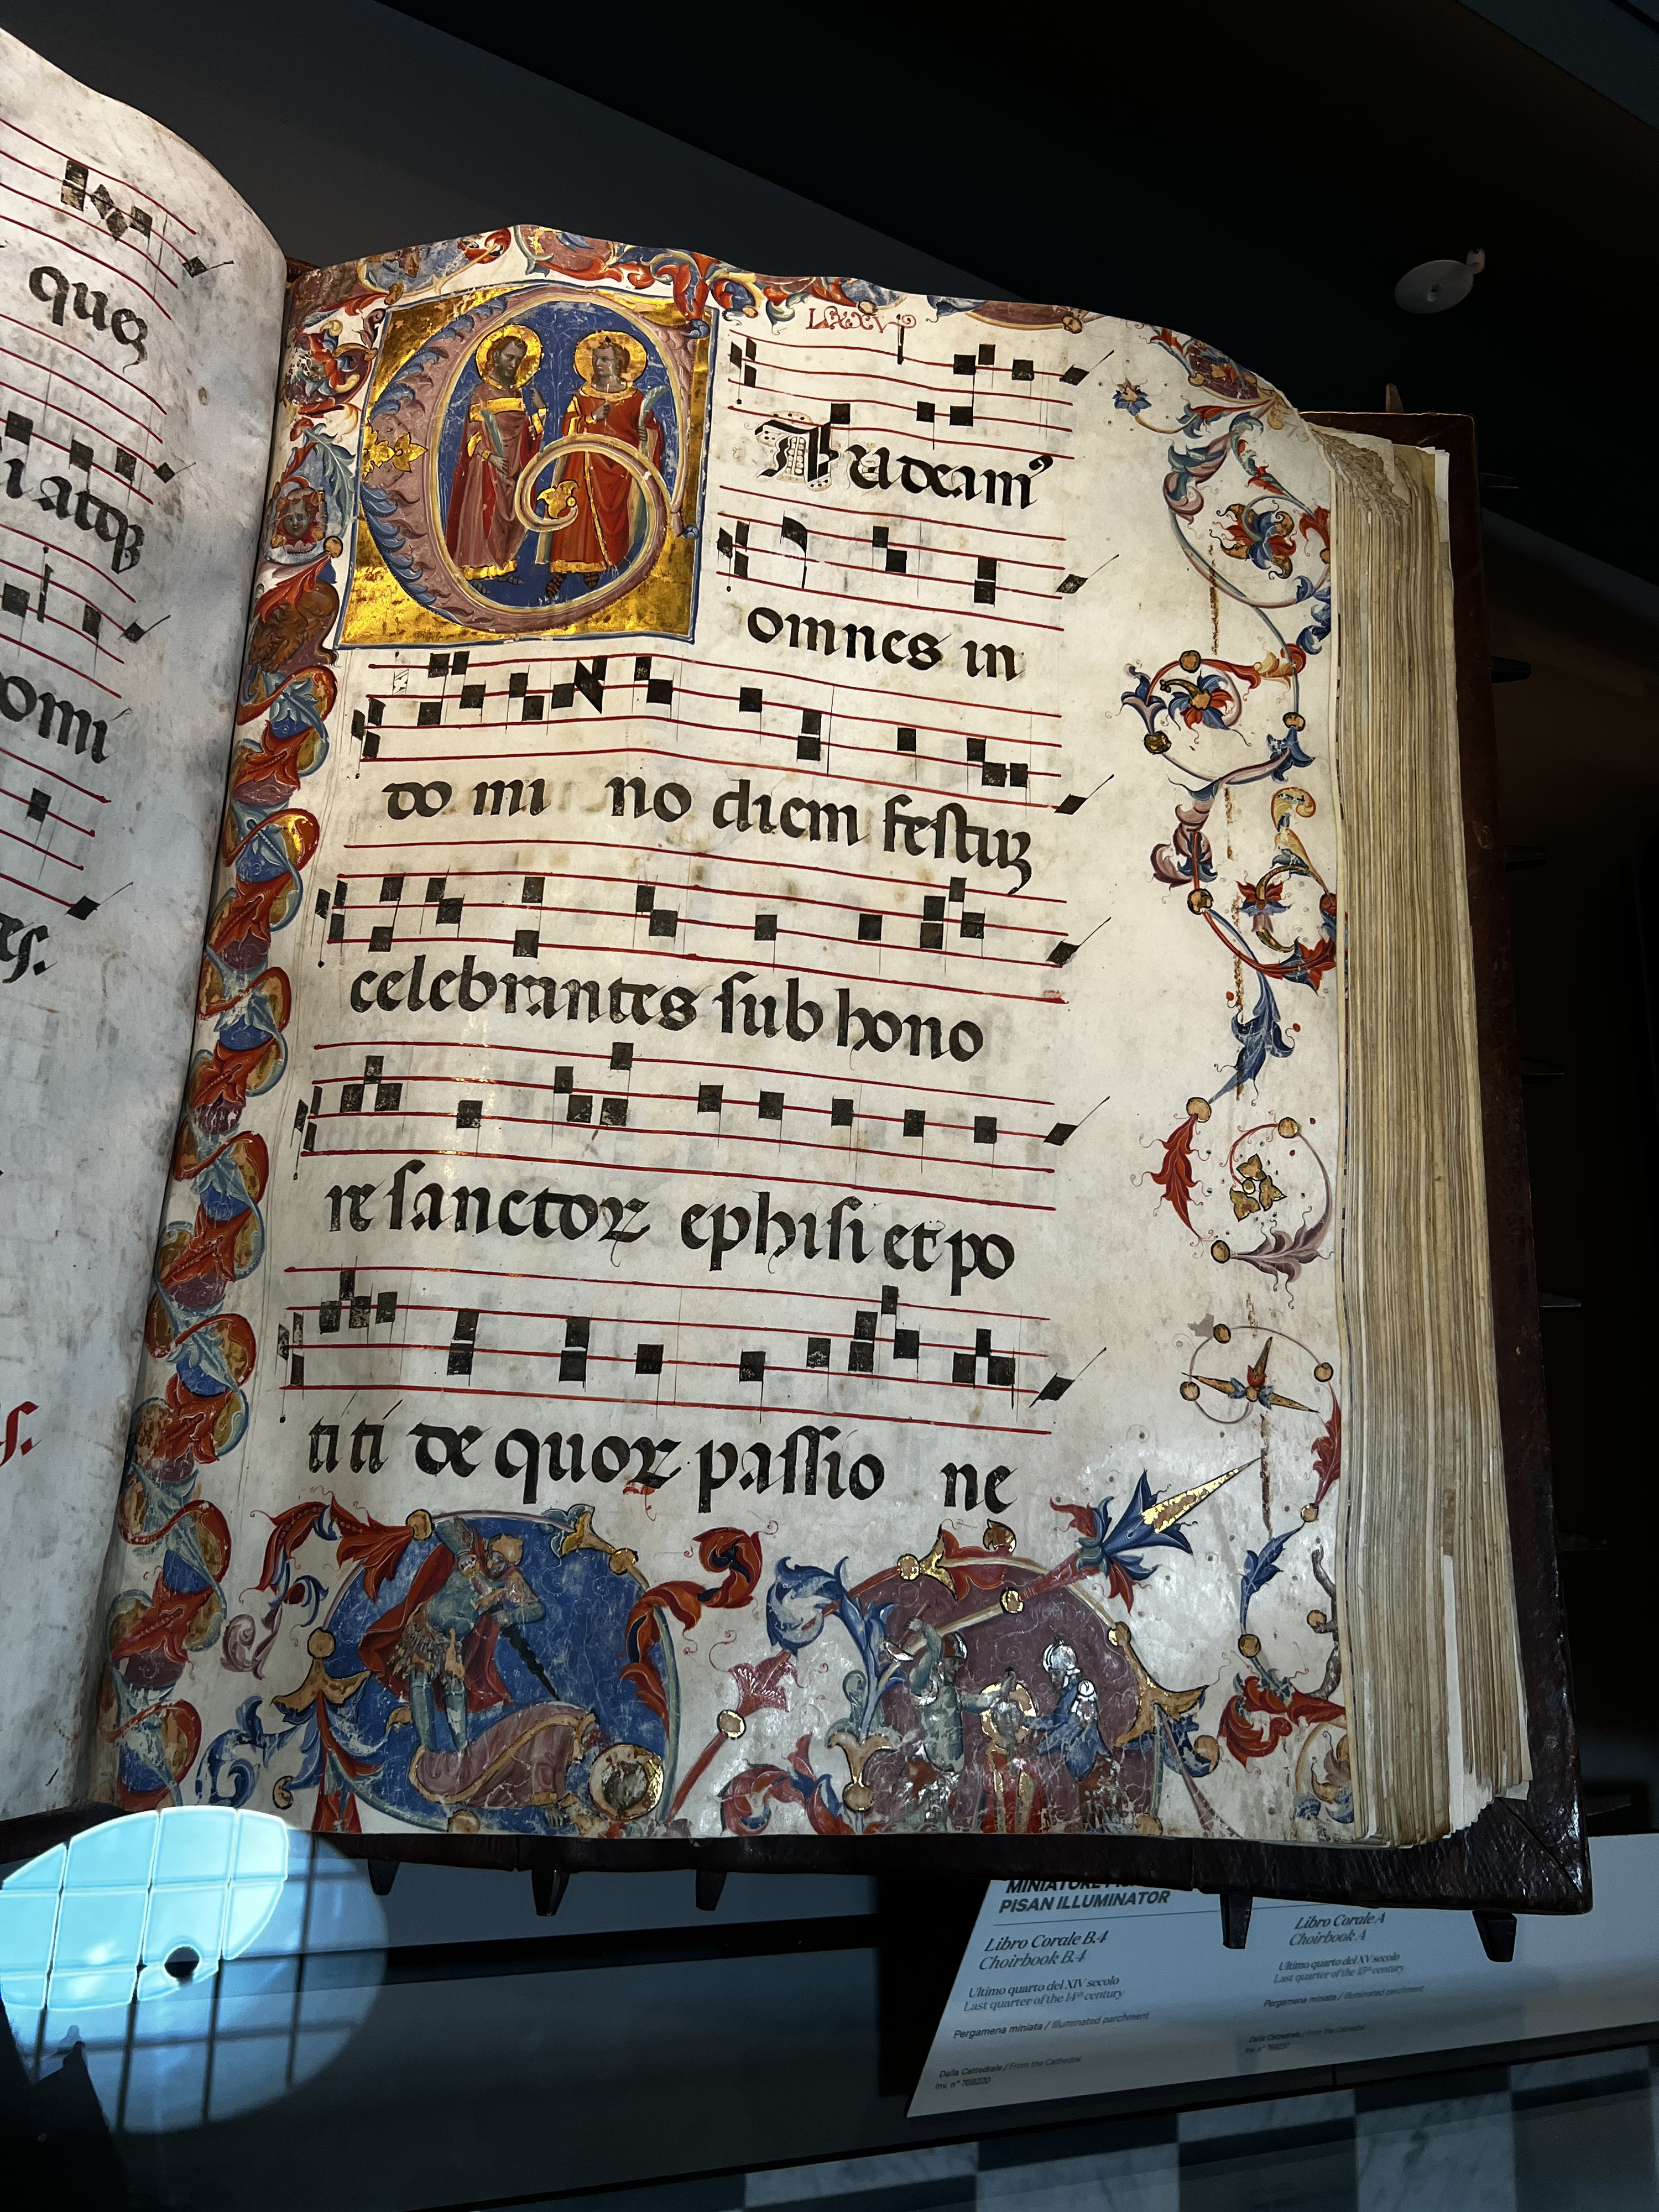 que
i atqꝫ
omi
es.
s.
LXXV
Audeamꝰ
omnes in
do mi no diem festuꝫ
celebrantes sub hono
re sanctoꝝ ephisi et po
titi de quoꝝ passio ne
PISAN ILLUMINATOR
Libro Corale B.4
Choirbook B.4
Ultimo quarto del XIV secolo
Last quarter of the 14th century
Pergamena miniata / Illuminated parchment
Dalla Cattedrale / From the Cathedral
Inv. n° 769220
Libro Corale A
Choirbook A
Ultimo quarto del XV secolo
Last quarter of the 15th century
Pergamena miniata / Illuminated parchment
Dalla Cattedrale / From the Cathedral